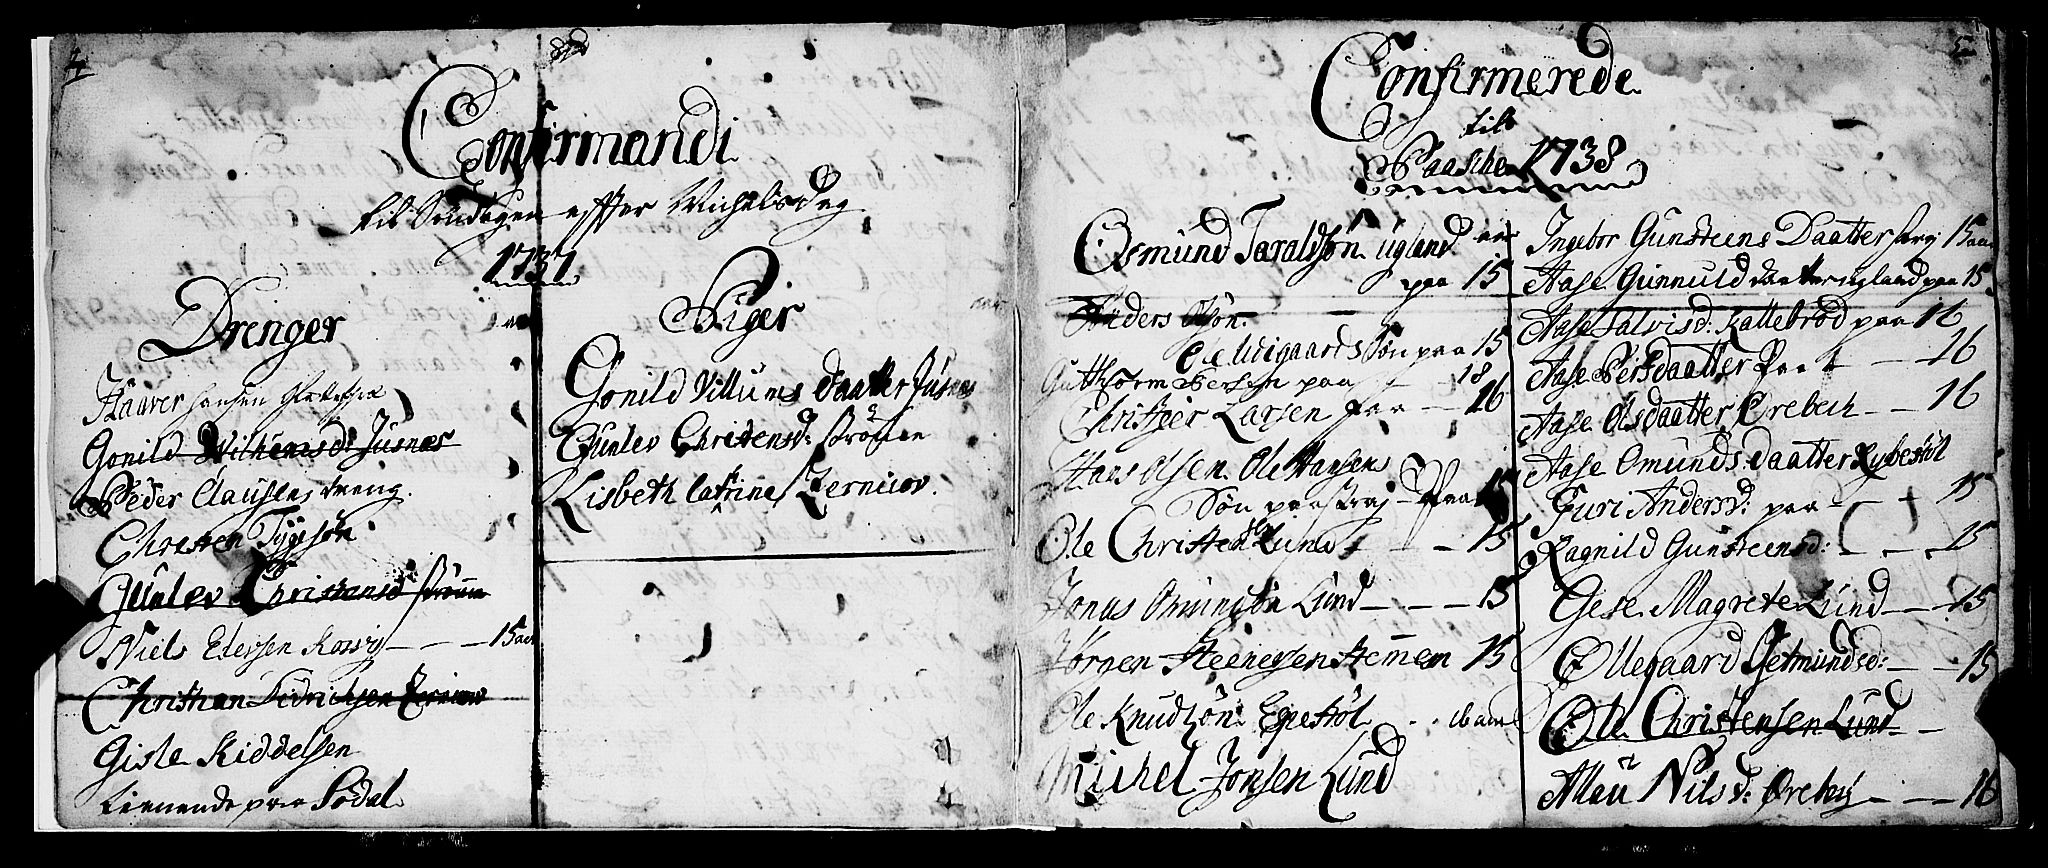 4
Confirmandi
til Søndagen effter Michelsdag
1737.
Drenger
Haaver Hansen
Gonild Wilhemsd: Jusnes
Peder Clausen
Chresten Tygesøn
Gunlev Christensd: Strømme
Niels Elevsen Kosvig - - - 15 aar
Christhan Zernicov
Gisle Kiddelsen
tienende paa Sødal
Piger
Gonild Villums Daatter Jusnes
Gunlev Christensd: Strømme
Lisbeth Catrina Zernicov.
5
Confirmerede
til
Paaschen 1738
Osmund Taraldsøn Ugland aar
paa 15
Anders Olsøn.
Ole Udigaards Søn paa 15
Gutthorm Persen paa - - 18
Christfer Larsen paa - - 16
Hans Olsen. Ole Hansens
Søn paa - Paa 15
Ole Christens: Lund - - - 15
Jonas Omundsøn Lund - - - 15
Jørgen Steenersen Stemmen 15
Ole Knudsøn Egestøl . . ib aar
Michel Jonsen Lund
Ingebor Gunsteens Daatter 15 aar
Aase Gunnuld daatter ugland paa 15
Aase Salvisd: Kallebrod paa 16
Aase Persdaatter Paa - - 16
Aase Olsdaatter Ørebech - - 16
Aase Omunds daatter Rybestøl
Guri Andersd: paa - - 15
Ragnild Gunsteensd: - - - 15
Gese Magrete Lund - - 15
Ollegaard Getmundsd: - - 15
Ole Christensen Lund -
Allau Nilsd: Øreberg - - - 16